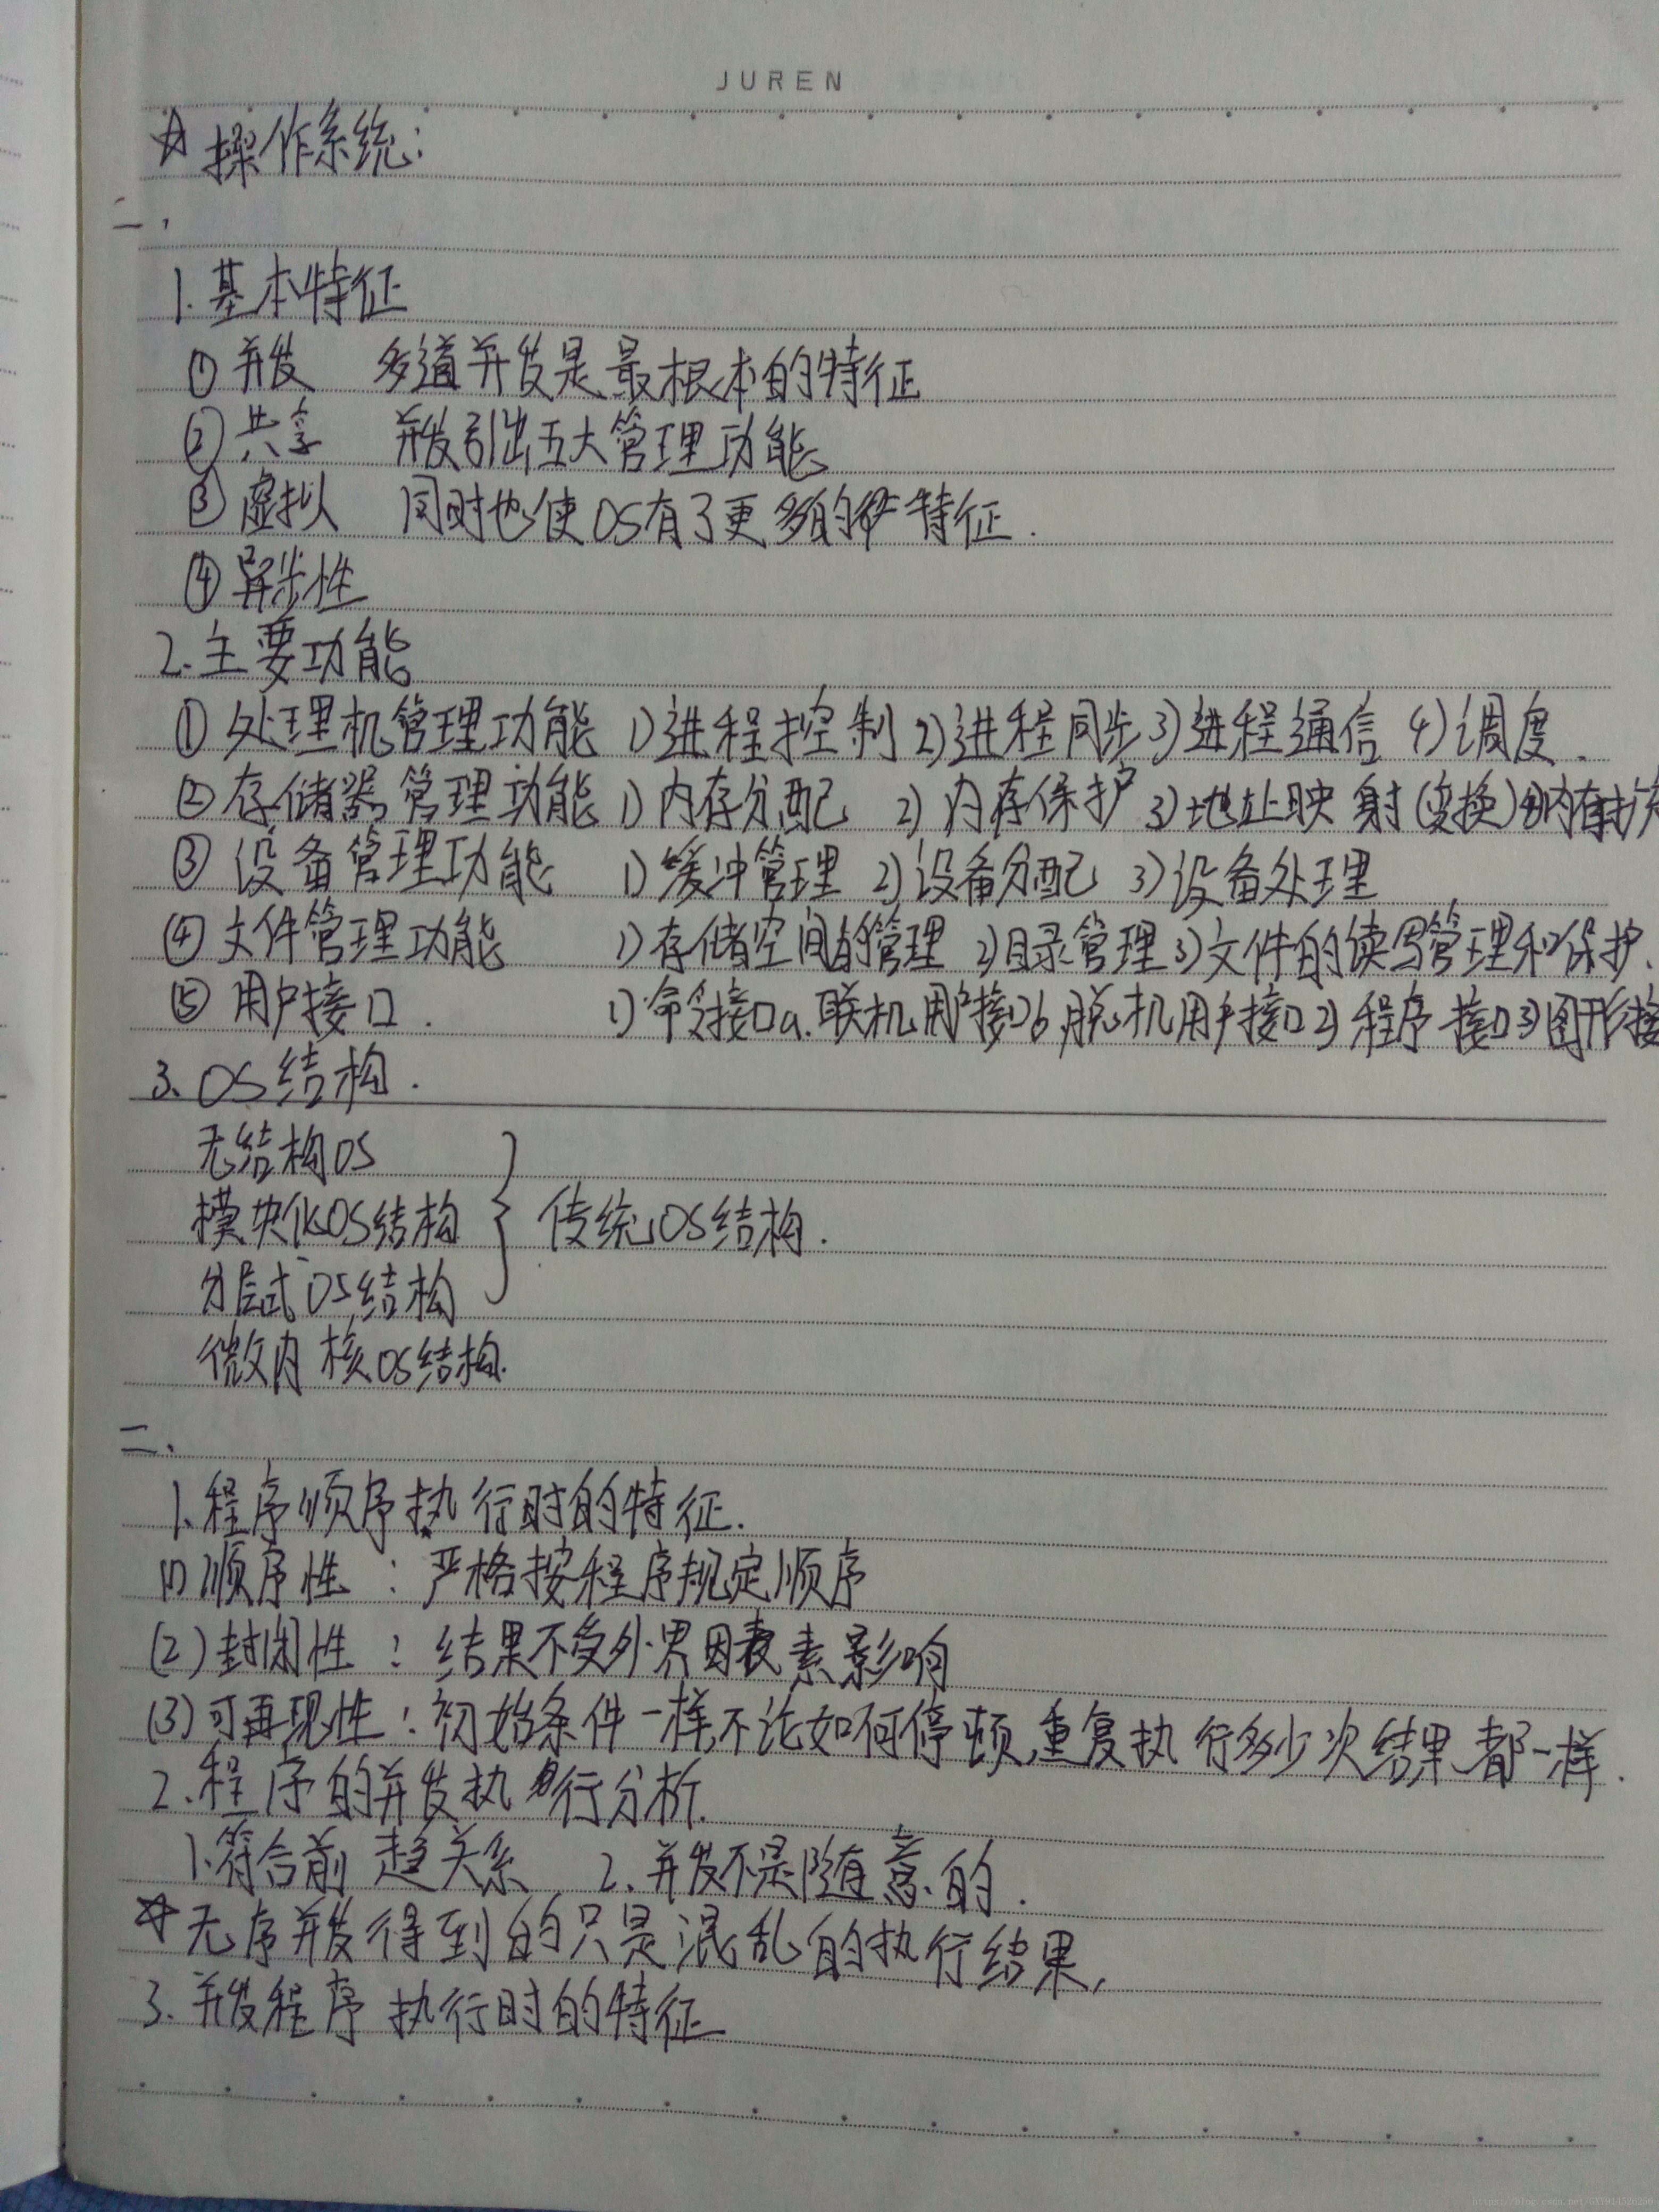 JUREN
☆ 操作系统:
一、
1. 基本特征
① 并发 多道并发是最根本的特征
② 共享 并发引出五大管理功能
③ 虚拟 同时也使OS有了更多的特征.
④ 异步性
2. 主要功能
① 处理机管理功能 1)进程控制 2)进程同步 3)进程通信 4)调度.
② 存储器管理功能 1)内存分配 2)内存保护 3)地址映射(变换) 4)内存扩
③ 设备管理功能 1)缓冲管理 2)设备分配 3)设备处理
④ 文件管理功能 1)存储空间的管理 2)目录管理 3)文件的读写管理和保护.
⑤ 用户接口. 1)命令接口a.联机用户接口b.脱机用户接口 2)程序接口 3)图形接
3. OS结构.
无结构OS
模块化OS结构 } 传统OS结构.
分层式OS结构
微内核OS结构.
二、
1. 程序顺序执行时的特征.
(1) 顺序性: 严格按程序规定顺序
(2) 封闭性: 结果不受外界因素影响
(3) 可再现性: 初始条件一样,不论如何停顿,重复执行多少次结果都一样.
2. 程序的并发执行分析.
1. 符合前趋关系 2. 并发不是随意的.
☆ 无序并发得到的只是混乱的执行结果,
3. 并发程序执行时的特征